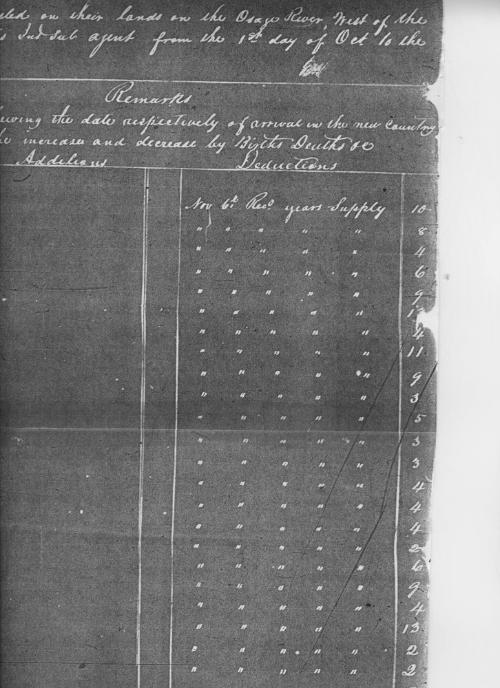 on their lands on the Osage River, West of the
Ind Sub agent from the 1st day of Oct to the
Remarks
the date respectively of arrival in the new Country
increase and decrease by Births Deaths &c
Additions Deductions
Nov 6th Recd years Supply 10
" " " " " 8
" " " " " 4
" " " " " 6
" " " " " 9
" " " " "
" " " " " 4
" " " " " 11
" " " " " 9
" " " " " 3
" " " " " 5
" " " " " 3
" " " " " 3
" " " " " 4
" " " " " 4
" " " " " 4
" " " " " 2
" " " " " 6
" " " " " 9
" " " " " 4
" " " " " 13
" " " " " 2
" " " " " 2